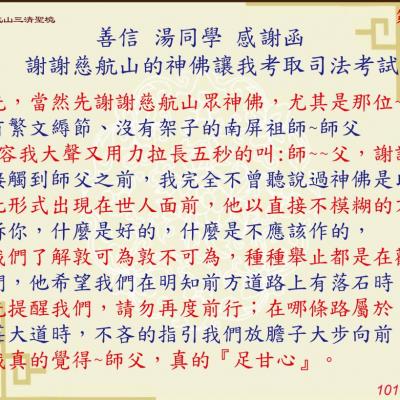 航山三清聖境
善信 湯同學 感謝函
謝謝慈航山的神佛讓我考取司法考試
，當然先謝謝慈航山眾神佛，尤其是那位~
繁文縟節、沒有架子的南屏祖師~師父
容我大聲又用力拉長五秒的叫:師~~父，謝
接觸到師父之前，我完全不曾聽說過神佛是
形式出現在世人面前，他以直接不模糊的方
訴你，什麼是好的，什麼是不應該作的，
我們了解敦可為敦不可為，種種舉止都是在
們，他希望我們在明知前方道路上有落石時
提醒我們，請勿再度前行；在哪條路屬於
大道時，不吝的指引我們放膽子大步向前
我真的覺得~師父，真的『足甘心』。
101